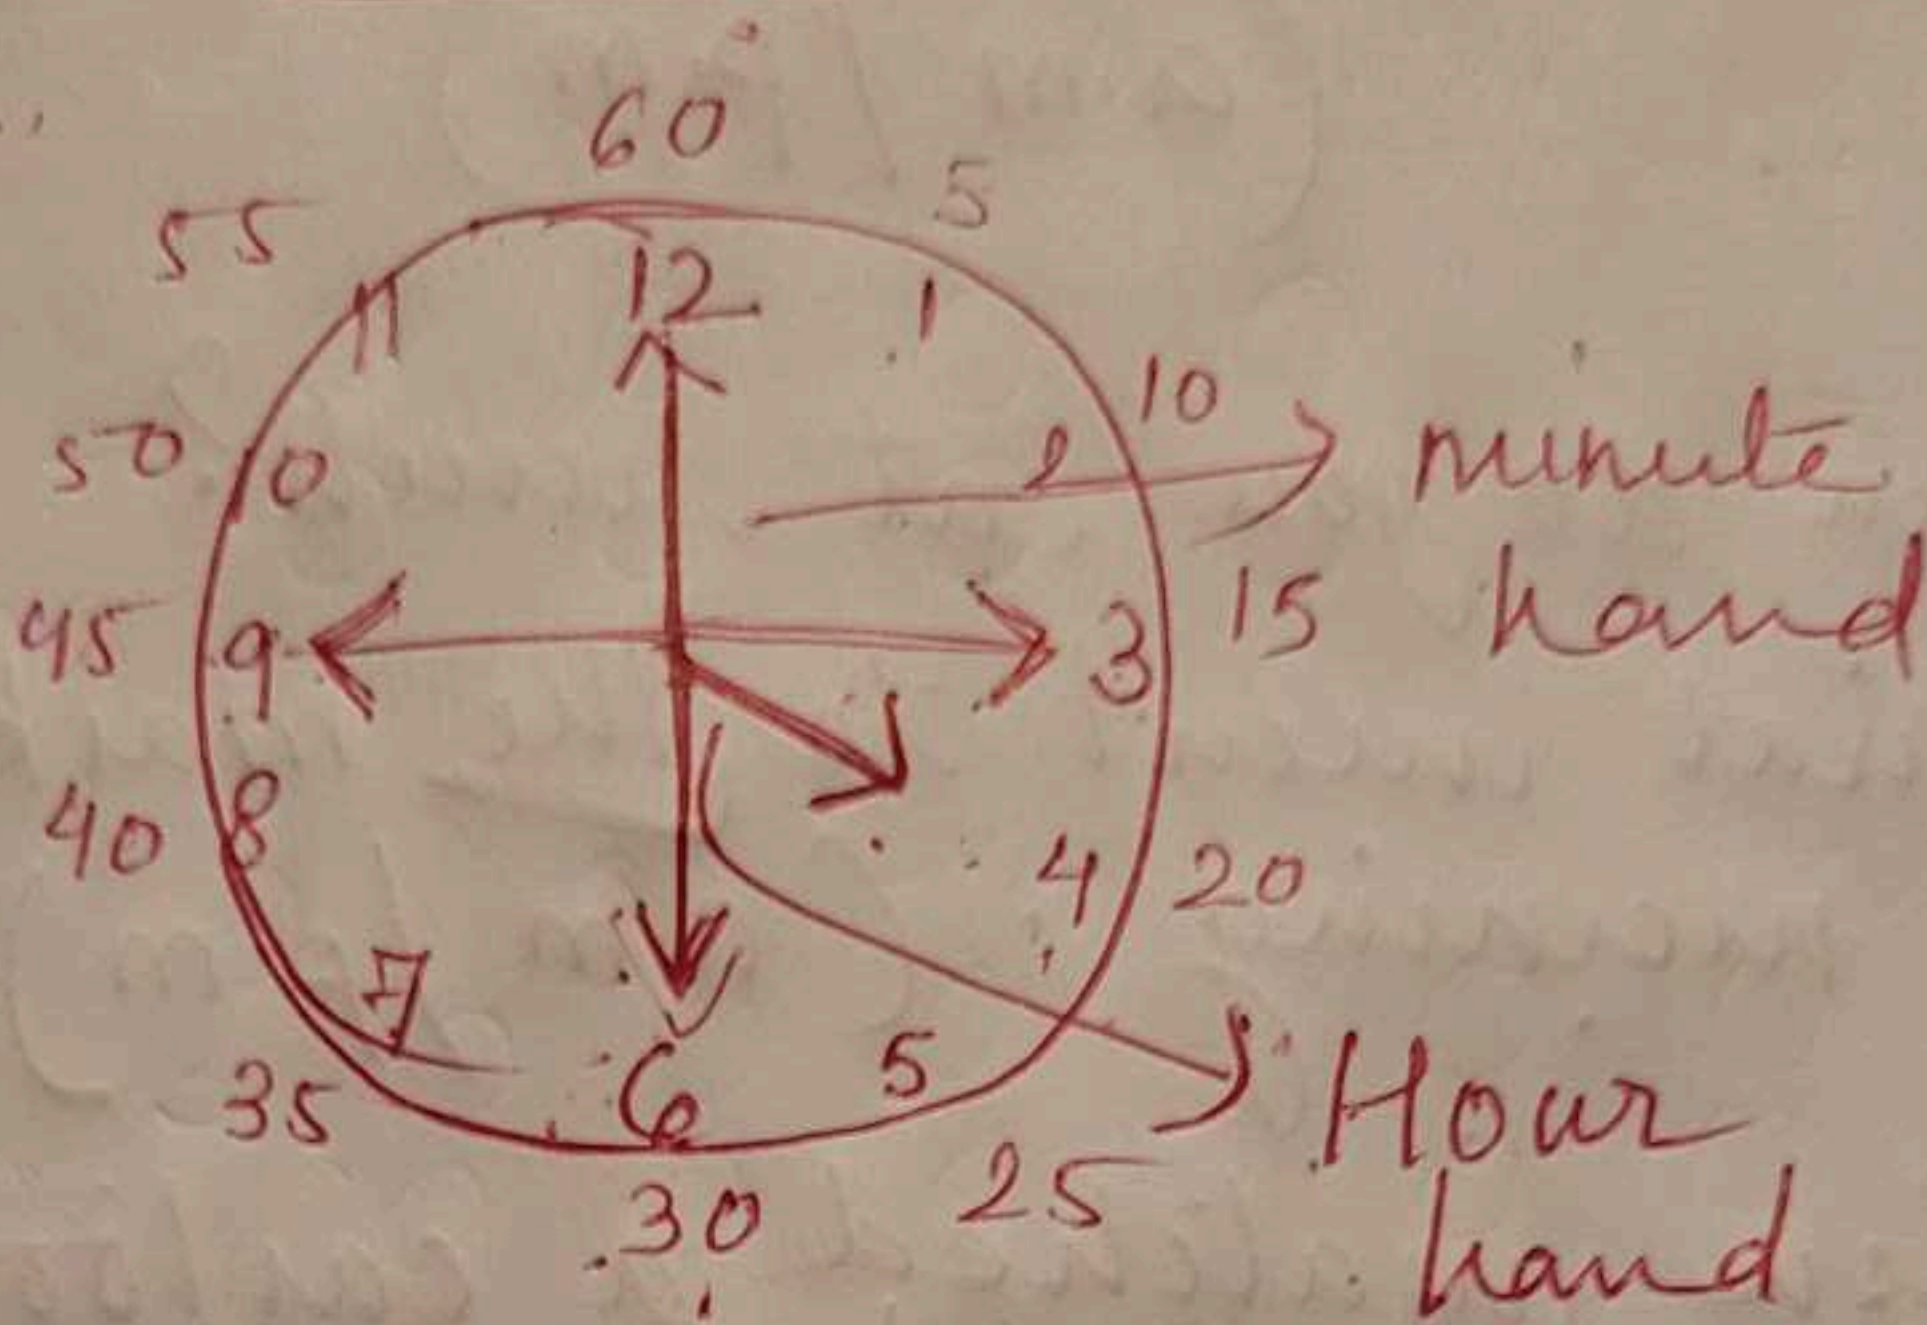 60
55 5
11 12 1
10
50 10 2 minute
hand
45 9 3 15
40 8 4 20
7 6 5
35 25
30
Hour
hand